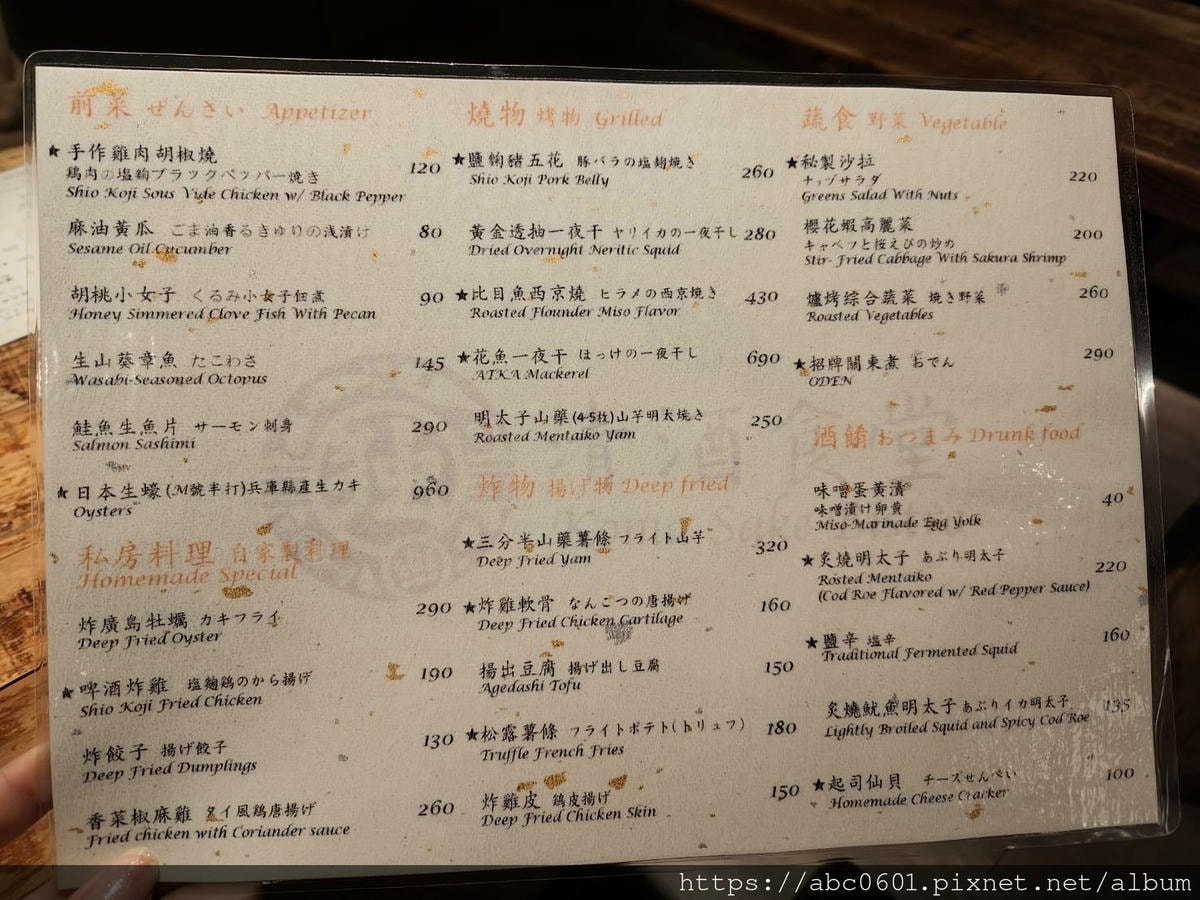 前菜 ぜんさい Appetizer
★手作雞肉胡椒燒
鶏肉の塩麹ブラックペッパー焼き 120
Shio Koji Sous Vide Chicken w/ Black Pepper
麻油黃瓜 ごま油香るきゅりの浅漬け 80
Sesame Oil Cucumber
胡桃小女子 くるみ小女子佃煮 90
Honey Simmered Clove Fish With Pecan
生山葵章魚 たこわさ 145
Wasabi-Seasoned Octopus
鮭魚生魚片 サーモン刺身 290
Salmon Sashimi
★日本生蠔(M號半打)兵庫縣產生カキ 960
Oysters
私房料理 自家製料理
Homemade Special
炸廣島牡蠣 カキフライ 290
Deep Fried Oyster
★啤酒炸雞 塩麹鶏のから揚げ 190
Shio Koji Fried Chicken
炸餃子 揚げ餃子 130
Deep Fried Dumplings
香菜椒麻雞 タイ風鶏唐揚げ 260
Fried chicken with Coriander sauce
燒物 烤物 Grilled
★鹽麴豬五花 豚バラの塩麹焼き 260
Shio Koji Pork Belly
黃金透抽一夜干 ヤリイカの一夜干し 280
Dried Overnight Neritic Squid
★比目魚西京燒 ヒラメの西京焼き 430
Roasted Flounder Miso Flavor
★花魚一夜干 ほっけの一夜干し 690
ATKA Mackerel
明太子山藥(4-5枚)山芋明太焼き 250
Roasted Mentaiko Yam
炸物 揚げ物 Deep fried
★三分半山藥薯條 フライト山芋 320
Deep Fried Yam
★炸雞軟骨 なんこつの唐揚げ 160
Deep Fried Chicken Cartilage
揚出豆腐 揚げ出し豆腐 150
Agedashi Tofu
★松露薯條 フライトポテト(トリュフ) 180
Truffle French Fries
炸雞皮 鶏皮揚げ 150
Deep Fried Chicken Skin
蔬食 野菜 Vegetable
★秘製沙拉
ナッヅサラダ 220
Greens Salad With Nuts
櫻花蝦高麗菜
キャベツと桜えびの炒め 200
Stir- Fried Cabbage With Sakura Shrimp
爐烤综合蔬菜 焼き野菜 260
Roasted Vegetables
★招牌關東煮 おでん 290
ODEN
酒餚 おつまみ Drunk food
味噌蛋黃漬
味噌漬け卵黄 40
Miso-Marinade Egg Yolk
★炙燒明太子 あぶり明太子
Rosted Mentaiko 220
(Cod Roe Flavored w/ Red Pepper Sauce)
★鹽辛 塩辛 160
Traditional Fermented Squid
炙燒魷魚明太子 あぶりイカ明太子 135
Lightly Broiled Squid and Spicy Cod Roe
★起司仙貝 チーズせんべい 100
Homemade Cheese Cracker
https://abc0601.pixnet.net/album